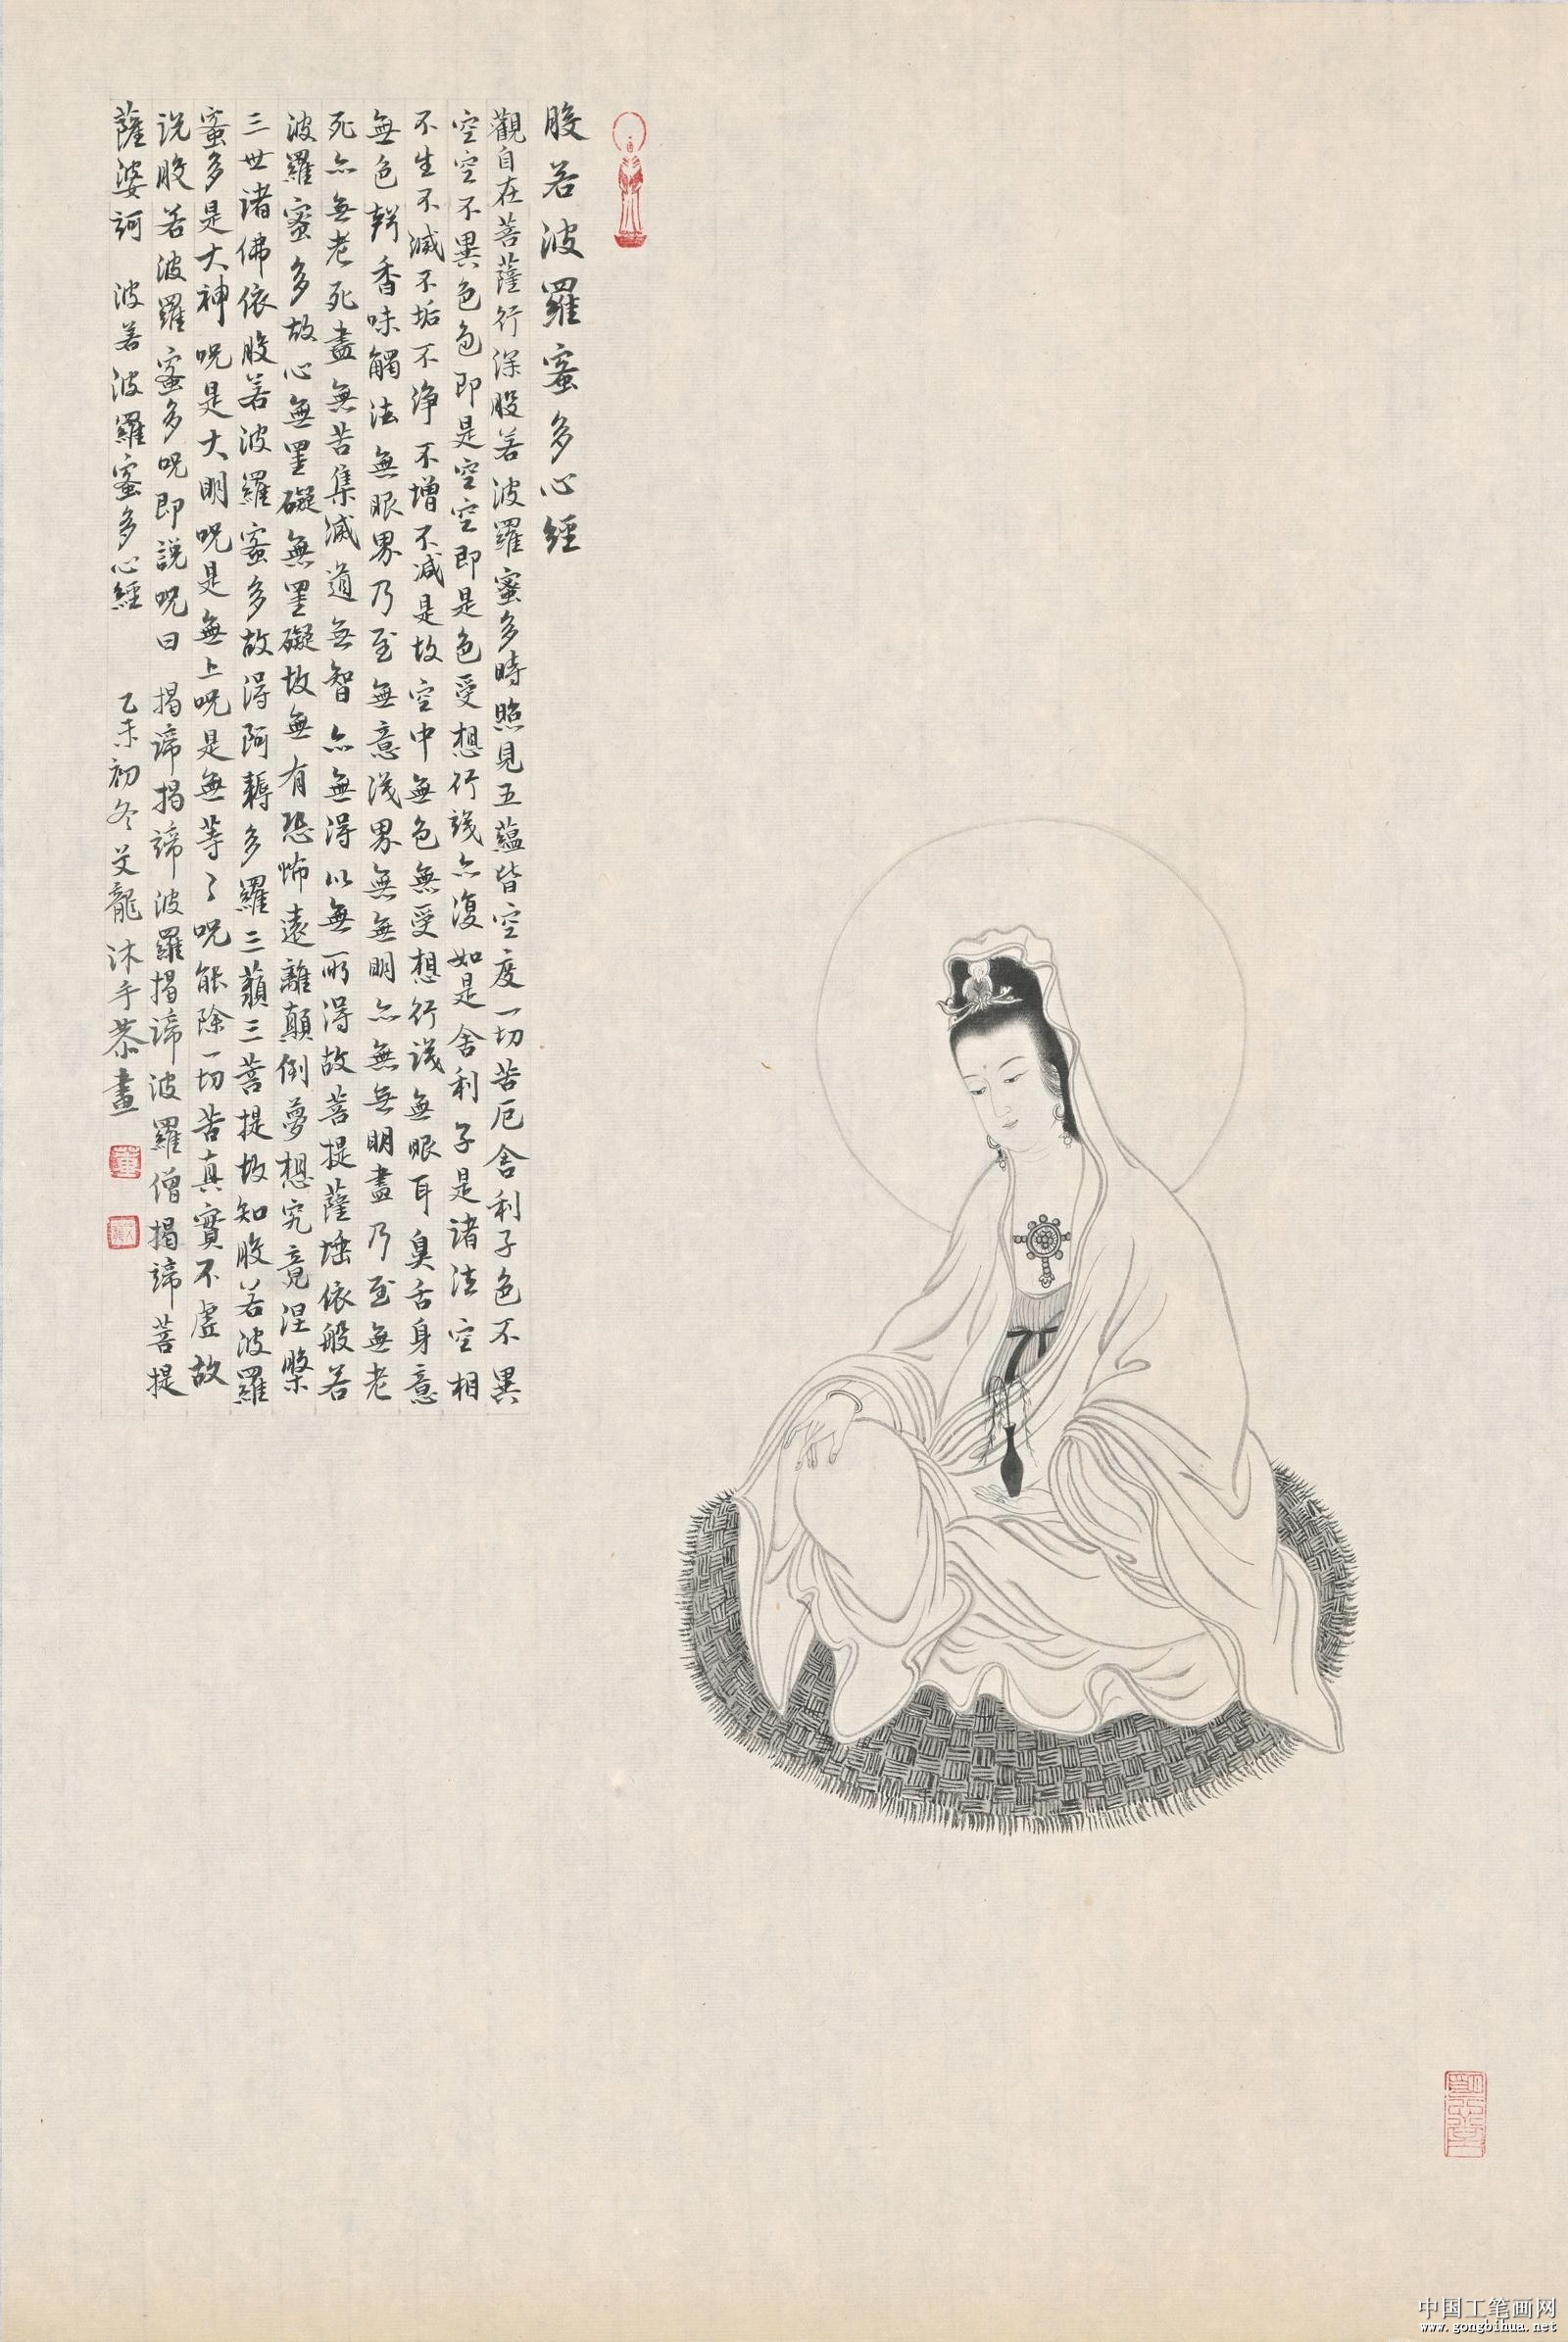 般若波羅蜜多心經
觀自在菩薩行深般若波羅蜜多時照見五蘊皆空度一切苦厄舍利子色不異
空空不異色色即是空空即是色受想行識亦復如是舍利子是諸法空相
不生不滅不垢不淨不增不減是故空中無色無受想行識無眼耳鼻舌身意
無色聲香味觸法無眼界乃至無意識界無無明亦無無明盡乃至無老
死亦無老死盡無苦集滅道無智亦無得以無所得故菩提薩埵依般若
波羅蜜多故心無罣礙無罣礙故無有恐怖遠離顛倒夢想究竟涅槃
三世諸佛依般若波羅蜜多故得阿耨多羅三藐三菩提故知般若波羅
蜜多是大神呪是大明呪是無上呪是無等々呪能除一切苦真實不虛故
説般若波羅蜜多呪即說呪曰 揭諦揭諦波羅揭諦波羅僧揭諦菩提
薩婆訶 波若波羅蜜多心經 乙未初冬艾龍沐手恭畫
董
中国工笔画网
www.gongbihua.net